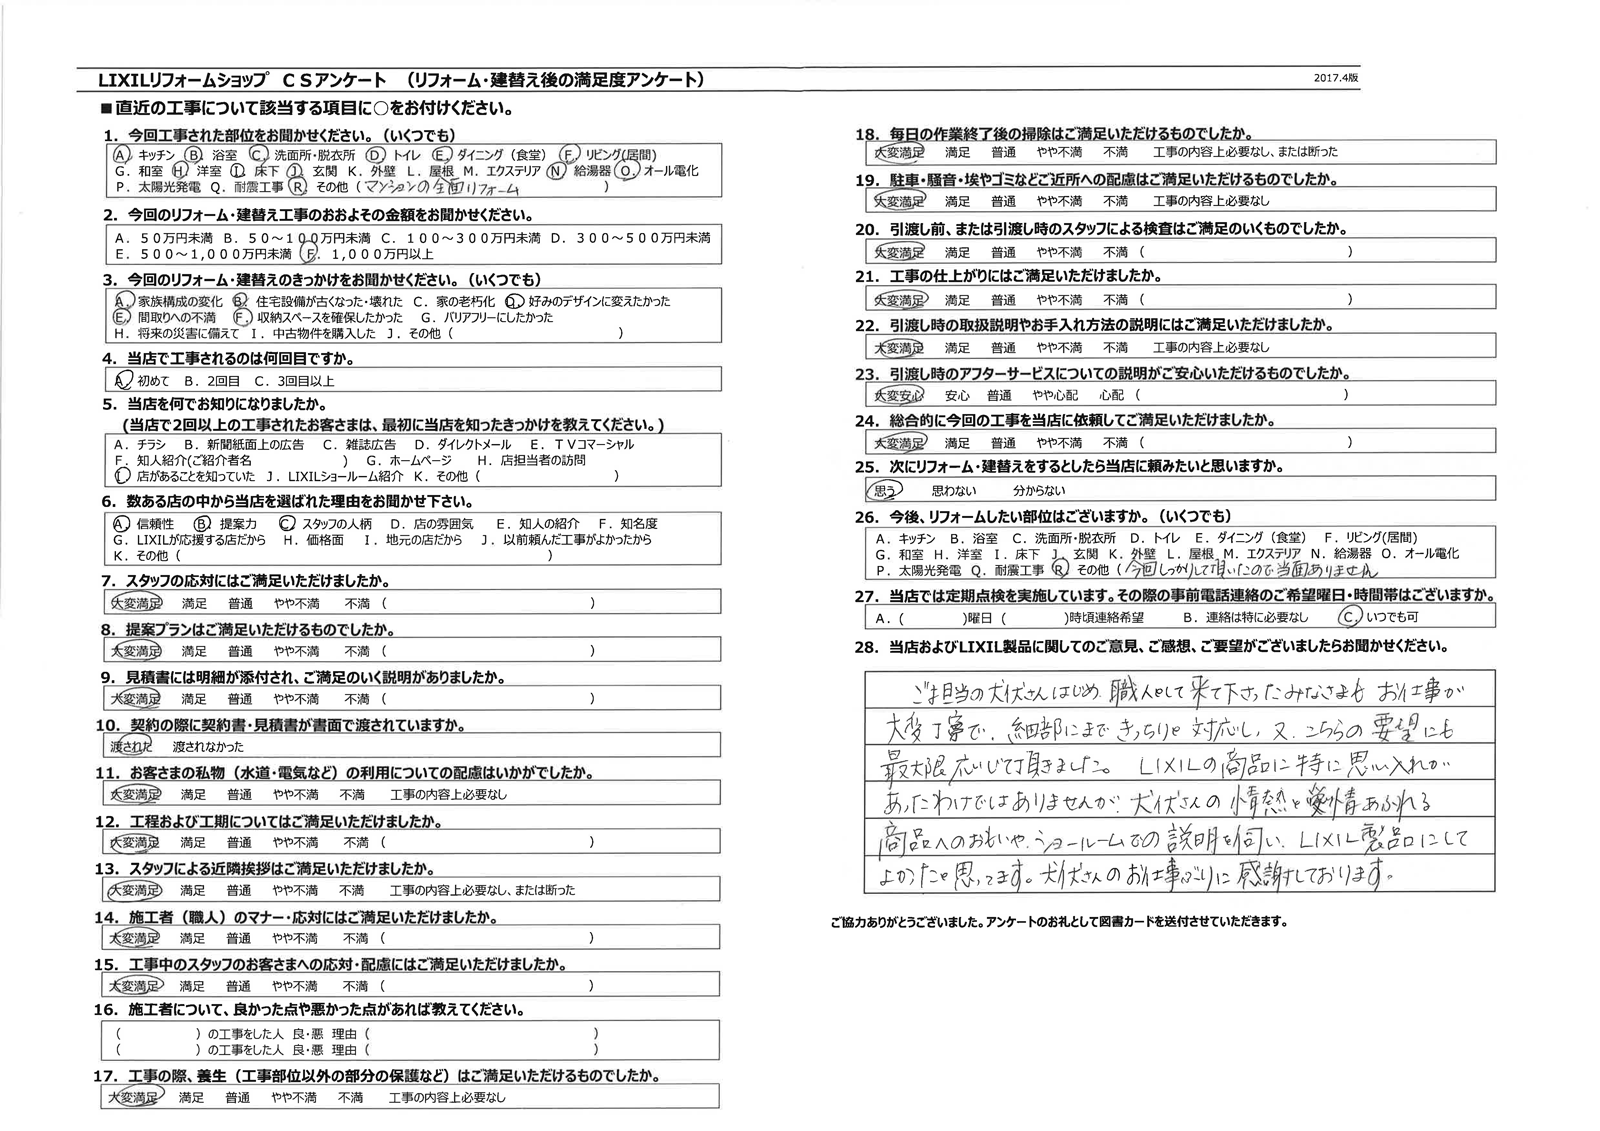 LIXILリフォームショップ ＣＳアンケート （リフォーム・建替え後の満足度アンケート）
2017.4版
■直近の工事について該当する項目に○をお付けください。
1．今回工事された部位をお聞かせください。（いくつでも）
A．キッチン B．浴室 C．洗面所・脱衣所 D．トイレ E．ダイニング（食堂） F．リビング(居間)
G．和室 H．洋室 I．床下 J．玄関 K．外壁 L．屋根 M．エクステリア N．給湯器 O．オール電化
P．太陽光発電 Q．耐震工事 R．その他（マンションの全面リフォーム ）
2．今回のリフォーム・建替え工事のおおよその金額をお聞かせください。
A．５０万円未満 B．５０～１００万円未満 C．１００～３００万円未満 D．３００～５００万円未満
E．５００～1,０００万円未満 F．１,０００万円以上
3．今回のリフォーム・建替えのきっかけをお聞かせください。（いくつでも）
A．家族構成の変化 B．住宅設備が古くなった・壊れた C．家の老朽化 D．好みのデザインに変えたかった
E．間取りへの不満 F．収納スペースを確保したかった G．バリアフリーにしたかった
H．将来の災害に備えて I．中古物件を購入した J．その他（ ）
4．当店で工事されるのは何回目ですか。
A．初めて B．2回目 C．3回目以上
5．当店を何でお知りになりましたか。
(当店で2回以上の工事されたお客さまは、最初に当店を知ったきっかけを教えてください。)
A．チラシ B．新聞紙面上の広告 C．雑誌広告 D．ダイレクトメール E．ＴＶコマーシャル
F．知人紹介(ご紹介者名 ) G．ホームページ H．店担当者の訪問
I．店があることを知っていた J．LIXILショールーム紹介 K．その他（ ）
6．数ある店の中から当店を選ばれた理由をお聞かせ下さい。
A．信頼性 B．提案力 C．スタッフの人柄 D．店の雰囲気 E．知人の紹介 F．知名度
G．LIXILが応援する店だから H．価格面 I．地元の店だから J．以前頼んだ工事がよかったから
K．その他（ ）
7．スタッフの応対にはご満足いただけましたか。
大変満足 満足 普通 やや不満 不満（ ）
8．提案プランはご満足いただけるものでしたか。
大変満足 満足 普通 やや不満 不満（ ）
9．見積書には明細が添付され、ご満足のいく説明がありましたか。
大変満足 満足 普通 やや不満 不満（ ）
10．契約の際に契約書・見積書が書面で渡されていますか。
渡された 渡されなかった
11．お客さまの私物（水道・電気など）の利用についての配慮はいかがでしたか。
大変満足 満足 普通 やや不満 不満 工事の内容上必要なし
12．工程および工期についてはご満足いただけましたか。
大変満足 満足 普通 やや不満 不満（ ）
13．スタッフによる近隣挨拶はご満足いただけましたか。
大変満足 満足 普通 やや不満 不満 工事の内容上必要なし、または断った
14．施工者（職人）のマナー・応対にはご満足いただけましたか。
大変満足 満足 普通 やや不満 不満（ ）
15．工事中のスタッフのお客さまへの応対・配慮にはご満足いただけましたか。
大変満足 満足 普通 やや不満 不満（ ）
16．施工者について、良かった点や悪かった点があれば教えてください。
（ ）の工事をした人 良・悪 理由（ ）
（ ）の工事をした人 良・悪 理由（ ）
17．工事の際、養生（工事部位以外の部分の保護など）はご満足いただけるものでしたか。
大変満足 満足 普通 やや不満 不満 工事の内容上必要なし
18．毎日の作業終了後の掃除はご満足いただけるものでしたか。
大変満足 満足 普通 やや不満 不満 工事の内容上必要なし、または断った
19．駐車・騒音・埃やゴミなどご近所への配慮はご満足いただけるものでしたか。
大変満足 満足 普通 やや不満 不満 工事の内容上必要なし
20．引渡し前、または引渡し時のスタッフによる検査はご満足のいくものでしたか。
大変満足 満足 普通 やや不満 不満（ ）
21．工事の仕上がりにはご満足いただけましたか。
大変満足 満足 普通 やや不満 不満（ ）
22．引渡し時の取扱説明やお手入れ方法の説明にはご満足いただけましたか。
大変満足 満足 普通 やや不満 不満 工事の内容上必要なし
23．引渡し時のアフターサービスについての説明がご安心いただけるものでしたか。
大変安心 安心 普通 やや心配 心配（ ）
24．総合的に今回の工事を当店に依頼してご満足いただけましたか。
大変満足 満足 普通 やや不満 不満（ ）
25．次にリフォーム・建替えをするとしたら当店に頼みたいと思いますか。
思う 思わない 分からない
26．今後、リフォームしたい部位はございますか。（いくつでも）
A．キッチン B．浴室 C．洗面所・脱衣所 D．トイレ E．ダイニング（食堂） F．リビング(居間)
G．和室 H．洋室 I．床下 J．玄関 K．外壁 L．屋根 M．エクステリア N．給湯器 O．オール電化
P．太陽光発電 Q．耐震工事 R．その他（今回しっかりして頂いたので当面ありません
27．当店では定期点検を実施しています。その際の事前電話連絡のご希望曜日・時間帯はございますか。
A．( )曜日（ )時頃連絡希望 B．連絡は特に必要なし C．いつでも可
28．当店およびLIXIL製品に関してのご意見、ご感想、ご要望がございましたらお聞かせください。
ご担当の犬伏さんはじめ、職人として来て下さったみなさまも お仕事が
大変丁寧で、細部にまできっちりと対応し、又、こちらの要望にも
最大限応じて頂きました。 LIXILの商品に特に思い入れが
あったわけではありませんが、犬伏さんの情熱と愛情あふれる
商品へのおもいや、ショールームでの説明を伺い、LIXIL製品にして
よかったと思ってます。犬伏さんのお仕事ぶりに感謝しております。
ご協力ありがとうございました。アンケートのお礼として図書カードを送付させていただきます。